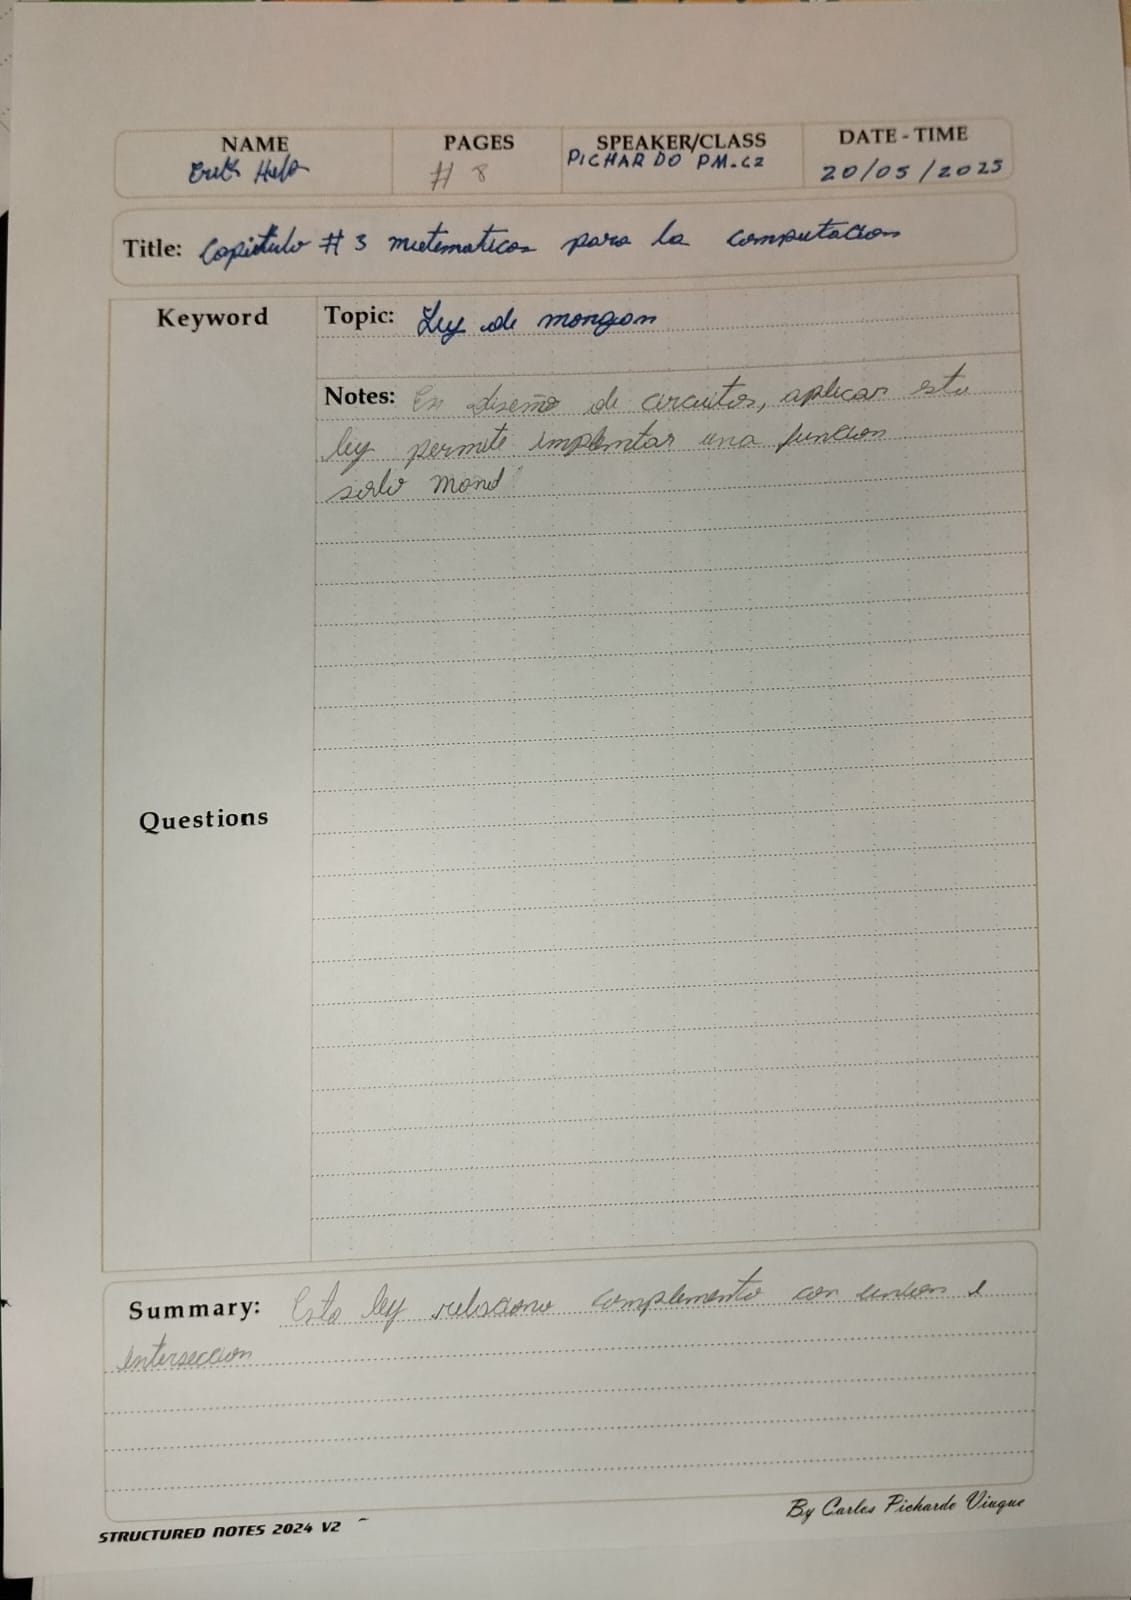 NAME PAGES SPEAKER/CLASS DATE - TIME
# 8 PICHARDO PM-C2 20/05/2025
Title: Capitulo # 3 matematicas para la computacion
Keyword Topic: Ley de morgan
Notes: En diseño de circuitos, aplicar esta
ley permite implmtar una funcion
solo
Questions
Summary: Esta ley relaciona complemento con union e
interseccion
STRUCTURED NOTES 2024 V2 By Carlos Pichardo Viuque